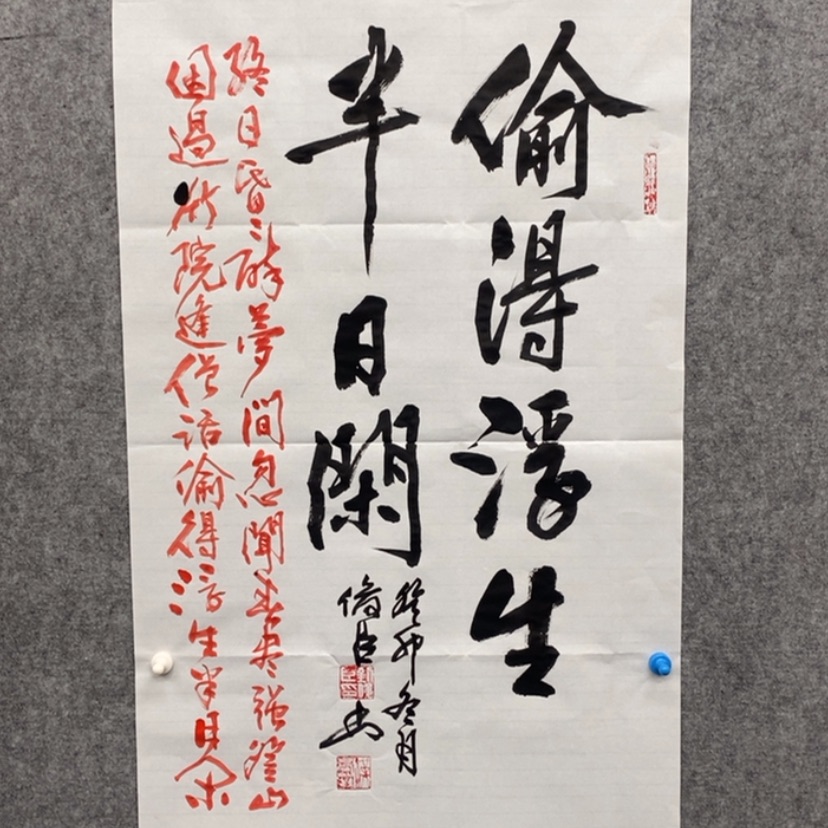 偷得浮生
半日閑
癸卯冬月
臣书
终日昏〻醉夢間忽聞春尽强登山
因過竹院逢僧话偷得浮生半日閑